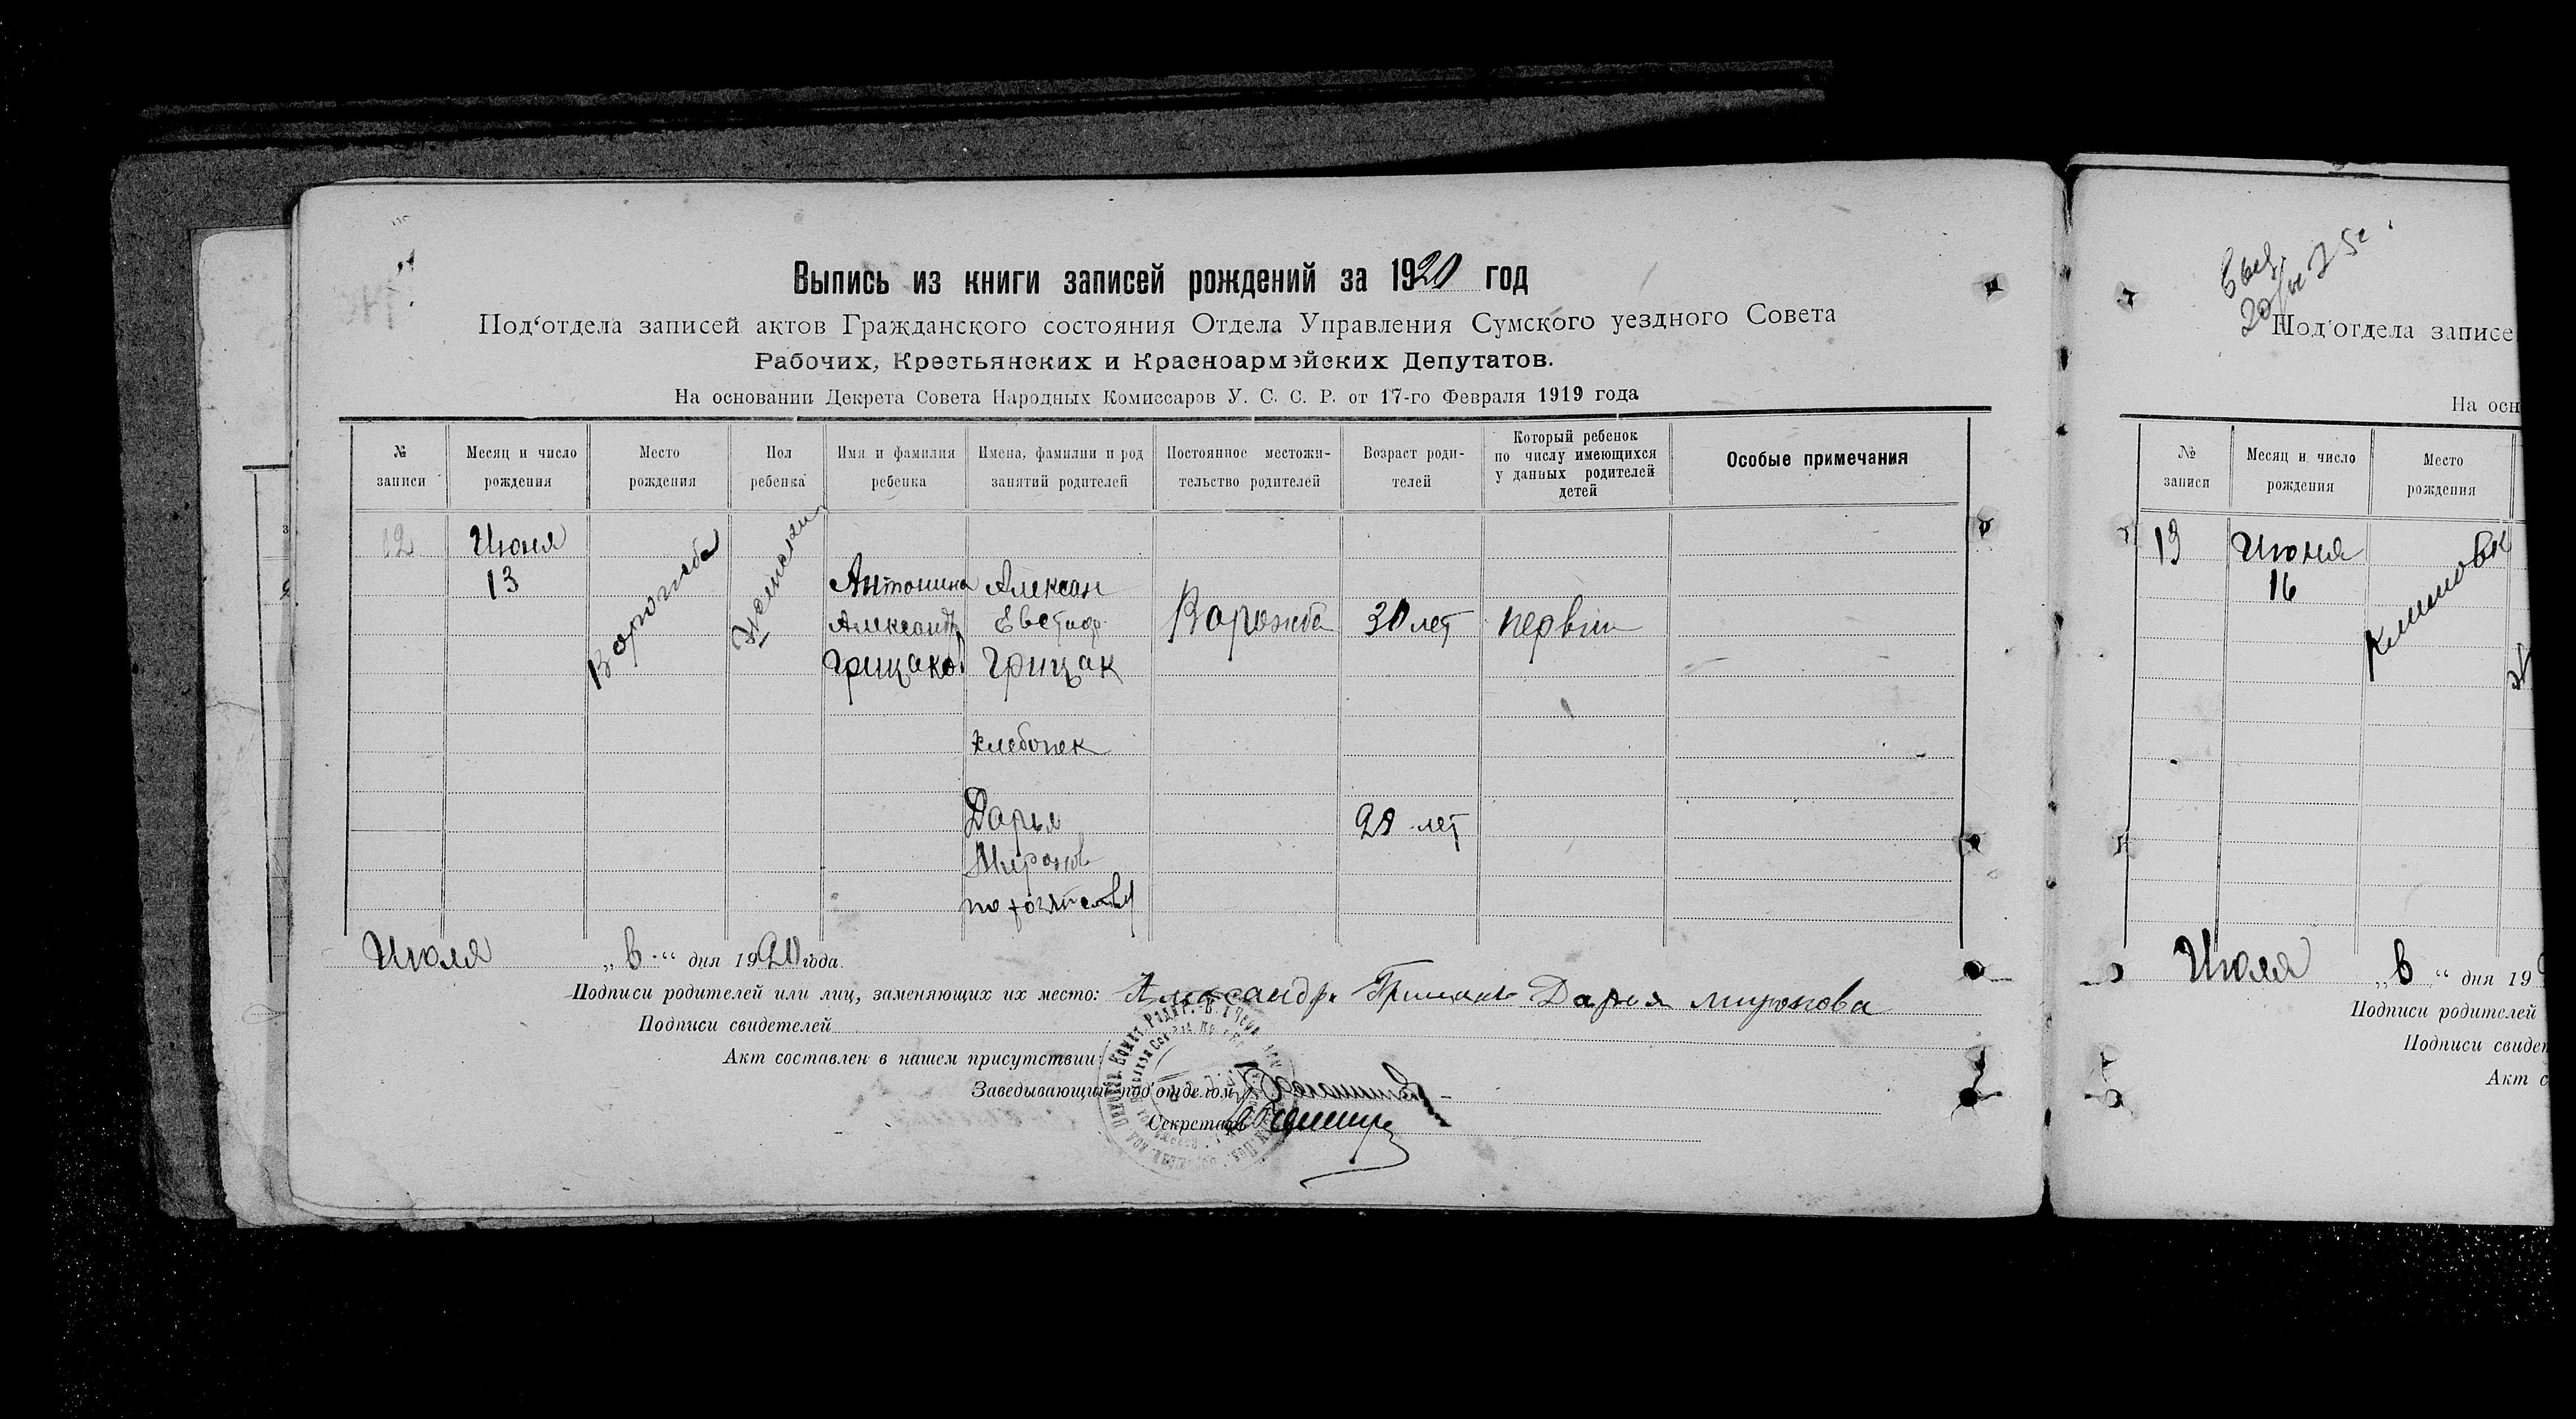 Выпись из книги записей рождений за 1920 год
Под‘отдела записей актов Гражданского состояния Отдела Управления Сумского уездного Совета
Рабочих, Крестьянских и Красноармэйских Депутатов.
На основании Декрета Совета Народных Комиссаров У. С. С. Р. от 17-го Февраля 1919 года
№ записи
Месяц и число рождения
Место рождения
Пол ребенка
Имя и фамилия ребенка
Имена, фамилии и род занятий родителей
Постоянное местожительство родителей
Возраст родителей
Который ребенок по числу имеющихся у данных родителей детей
Особые примечания
12
Июня
13
Ворожба
Женский
Антонина
Александр
Грицаков
Алексан
Евстаф
Грицак
хлебопек
Дарья
Миронов
по хозяйству
Ворожба
30 лет
28 лет
первый
Июля „6“ дня 1920 года.
Подписи родителей или лиц, заменяющих их место: Александр Грицак Дария миронова
Подписи свидетелей
Акт составлен в нашем присутствии:
Заведывающий под‘отделом
Секретарь
Под‘отдела записе
На осн
№ записи
Месяц и число рождения
Место рождения
13
Июня
16
Июля „6“ дня 19
Подписи родителей
Подписи свидет
Акт с